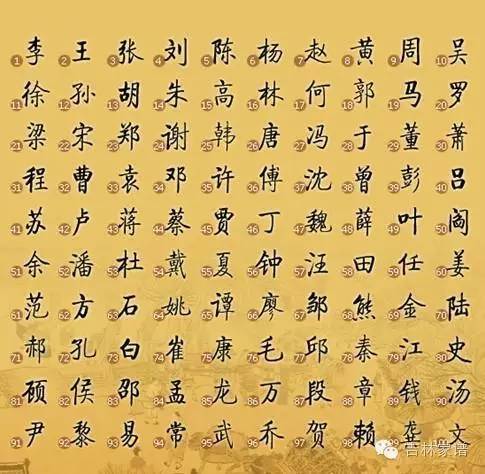 1李 2王 3张 4刘 5陈 6杨 7赵 8黄 9周 10吴
11徐 12孙 13胡 14朱 15高 16林 17何 18郭 19马 20罗
21梁 22宋 23郑 24谢 25韩 26唐 27冯 28于 29董 30萧
31程 32曹 33袁 34邓 35许 36傅 37沈 38曾 39彭 40吕
41苏 42卢 43蒋 44蔡 45贾 46丁 47魏 48薛 49叶 50阎
51余 52潘 53杜 54戴 55夏 56钟 57汪 58田 59任 60姜
61范 62方 63石 64姚 65谭 66廖 67邹 68熊 69金 70陆
71郝 72孔 73白 74崔 75康 76毛 77邱 78秦 79江 80史
81顾 82侯 83邵 84孟 85龙 86万 87段 88章 89钱 90汤
91尹 92黎 93易 94常 95武 96乔 97贺 98赖 99龚 文
吉林家谱